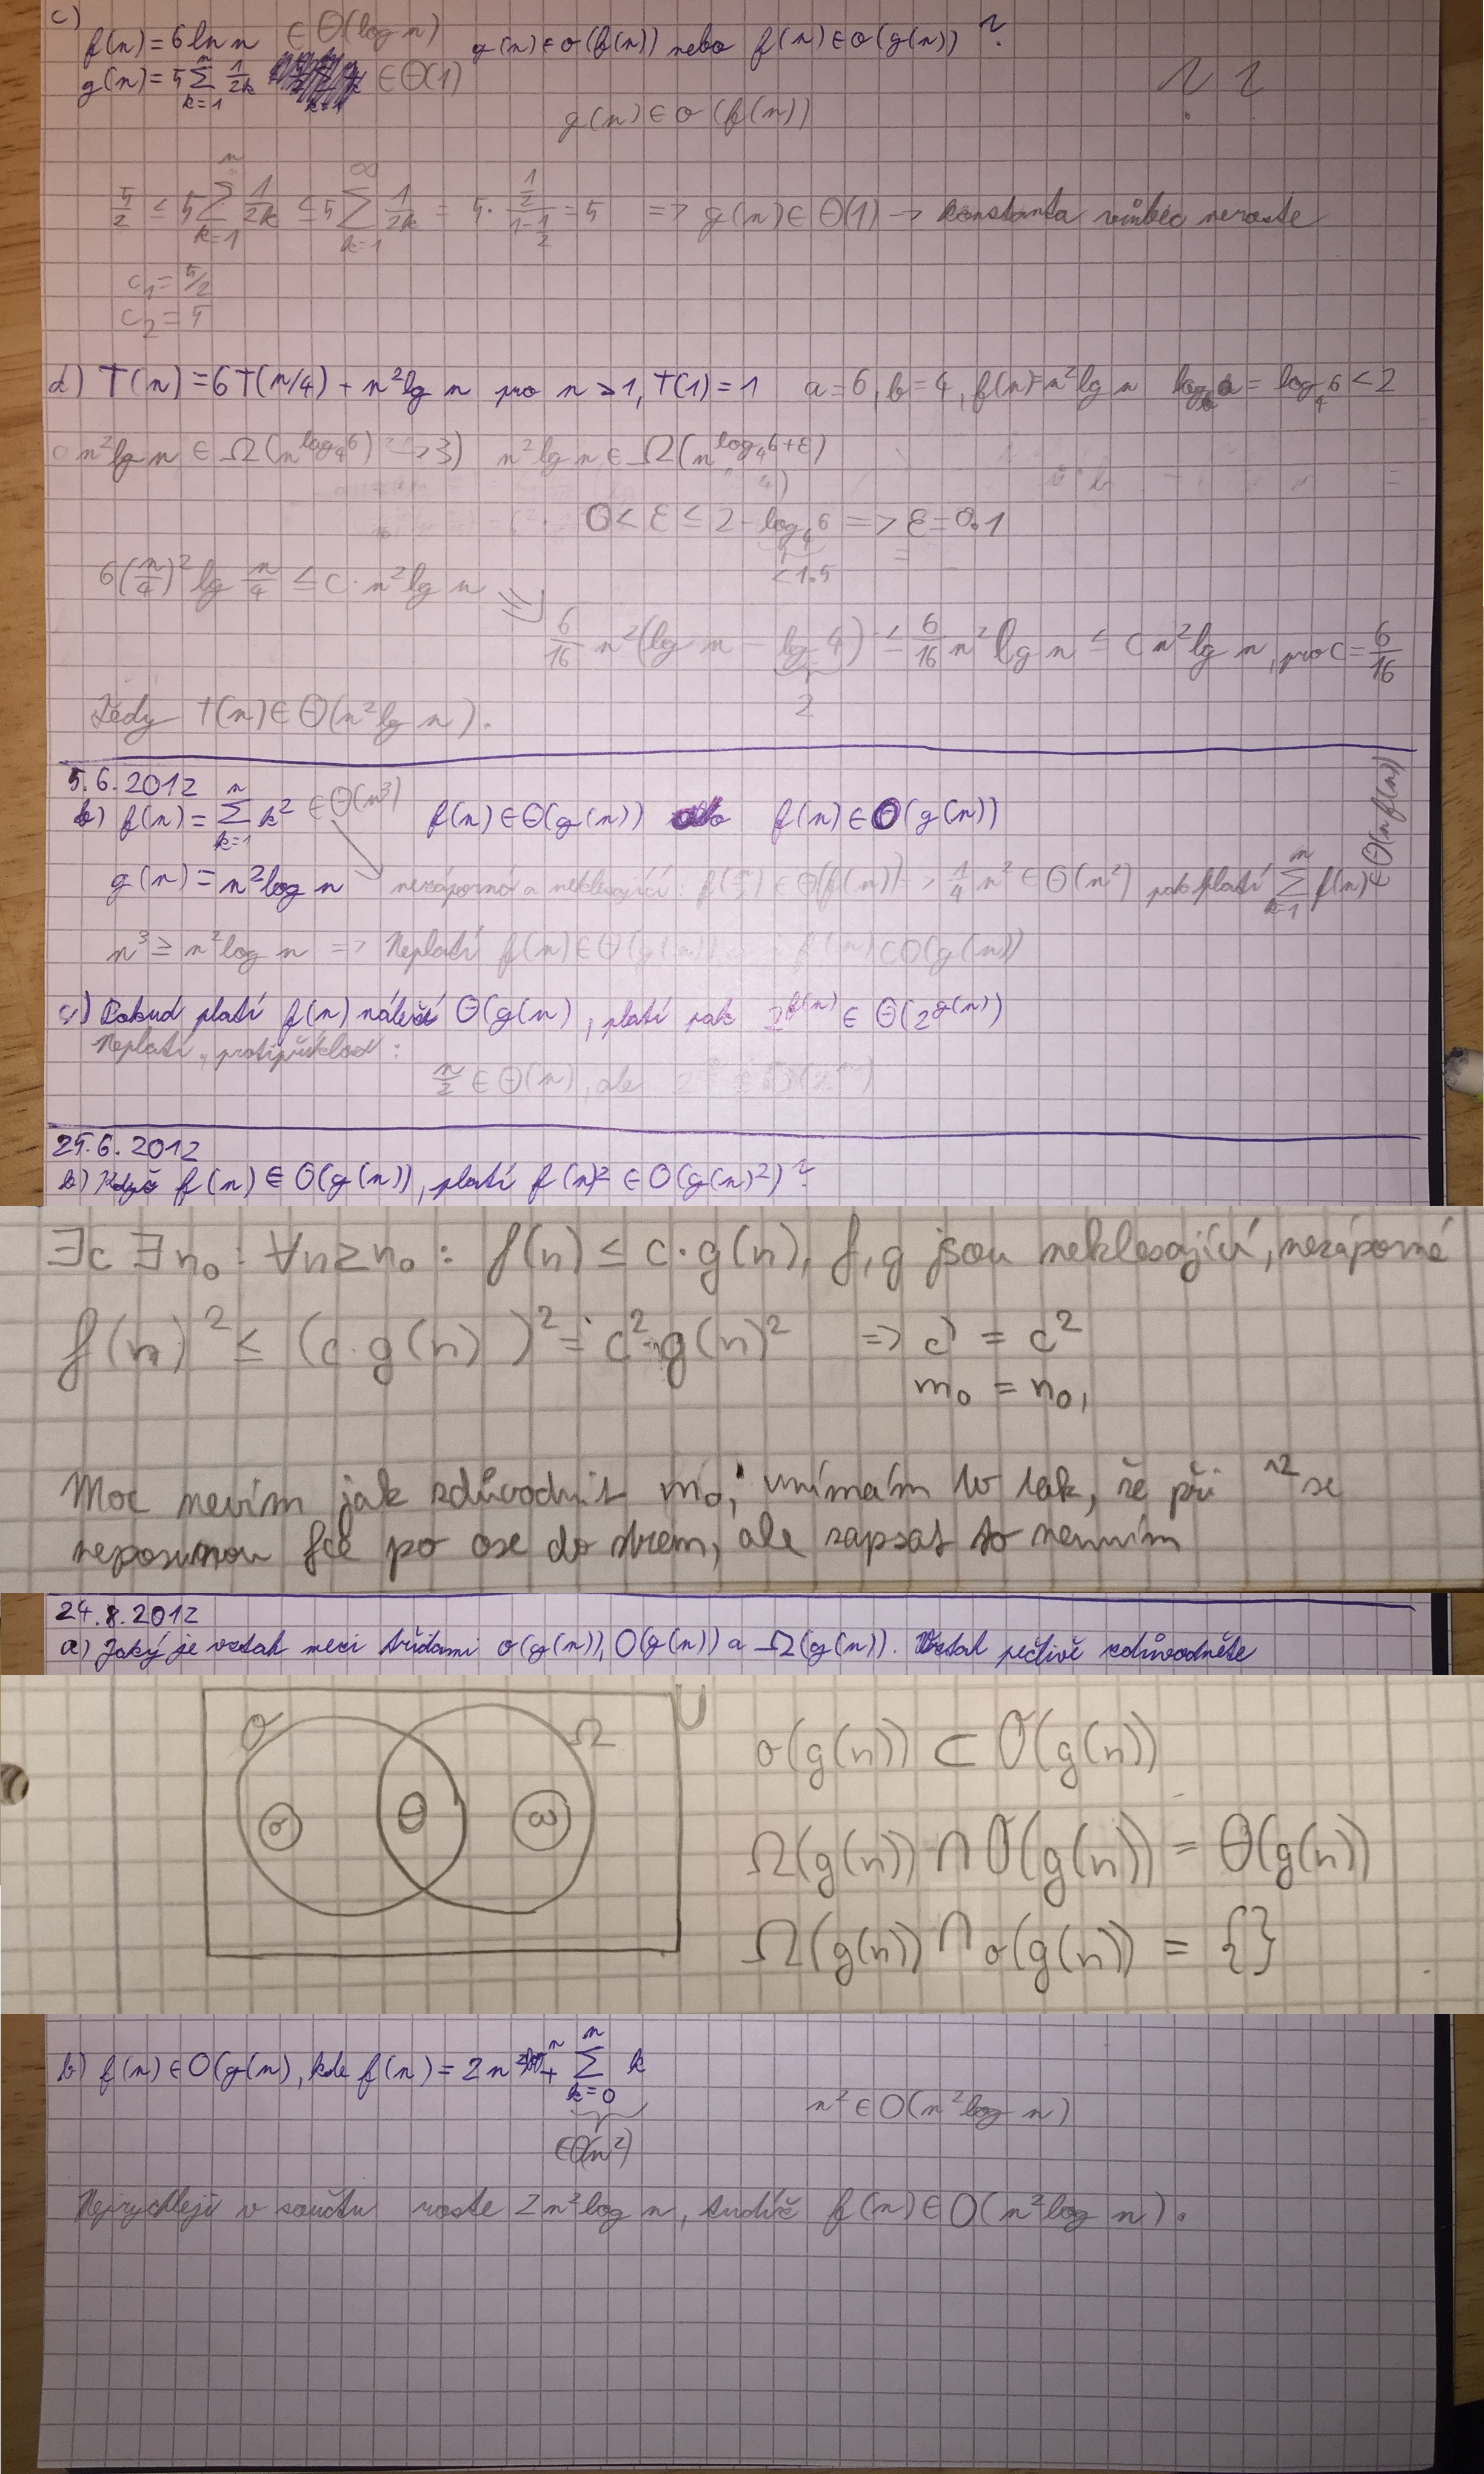 c)
f(n) = 6 ln n ∈ Θ(log n) g(n) ∈ o(f(n)) nebo f(n) ∈ o(g(n)) ?
g(n) = 5 ∑_{k=1}^{n} 1/2k ∈ Θ(1) ? ?
g(n) ∈ o(f(n))
5/2 ≤ 5 ∑_{k=1}^{n} 1/2k ≤ 5 ∑_{k=1}^{∞} 1/2k = 5 · (1/2)/(1-1/2) = 5 => g(n) ∈ Θ(1) → konstanta vůbec neroste
c₁ = 5/2
c₂ = 5
d) T(n) = 6T(n/4) + n² lg n pro n > 1, T(1) = 1 a = 6, b = 4, f(n) = n² lg n log_b a = log_4 6 < 2
n² lg n ∈ Ω(n^{log_4 6}) → 3) n² lg n ∈ Ω(n^{log_4 6 + ε})
0 < ε ≤ 2 - log_4 6 => ε = 0.1
< 1.5
6(n/4)² lg n/4 ≤ c · n² lg n
6/16 n² (lg n - lg 4) ≤ 6/16 n² lg n ≤ c n² lg n, pro c = 6/16
2
Tedy T(n) ∈ Θ(n² lg n).
5.6.2012
b) f(n) = ∑_{k=1}^{n} k² ∈ Θ(n³) f(n) ∈ Θ(g(n)) f(n) ∈ O(g(n))
g(n) = n² log n nezáporná a neklesající: f(n/2) ∈ Θ(f(n)) => 1/4 n² ∈ Θ(n²) pak platí ∑_{k=1}^{n} f(n) ∈ Θ(n f(n))
n³ ≥ n² log n => Neplatí f(n) ∈ Θ(g(n)) f(n) ∈ O(g(n))
c) Pokud platí f(n) náleží Θ(g(n), platí pak 2^{f(n)} ∈ Θ(2^{g(n)})
Neplatí, protipříklad:
n/2 ∈ Θ(n), ale
25.6.2012
b) Když f(n) ∈ O(g(n)), platí f(n)² ∈ O(g(n)²) ?
∃c ∃n₀ : ∀n ≥ n₀ : f(n) ≤ c·g(n), f, g jsou neklesající, nezáporné
f(n)² ≤ (c·g(n))² = c²·g(n)² => c' = c²
m₀ = n₀,
Moc nevím jak zdůvodnit m₀, vnímám to tak, že při ^2 se
neposunou fce po ose do stran, ale zapsat to neumím
24.8.2012
a) Jaký je vztah mezi třídami o(g(n)), O(g(n)) a Ω(g(n)). Vztah pečlivě zdůvodněte
O Ω U
o Θ ω
o(g(n)) ⊂ O(g(n))
Ω(g(n)) ∩ O(g(n)) = Θ(g(n))
Ω(g(n)) ∩ o(g(n)) = {}
b) f(n) ∈ O(g(n), kde f(n) = 2n² log n + ∑_{k=0}^{n} k
∈ O(n²)
n² ∈ O(n² log n)
Nejrychleji v součtu roste 2n² log n, tudíž f(n) ∈ O(n² log n).